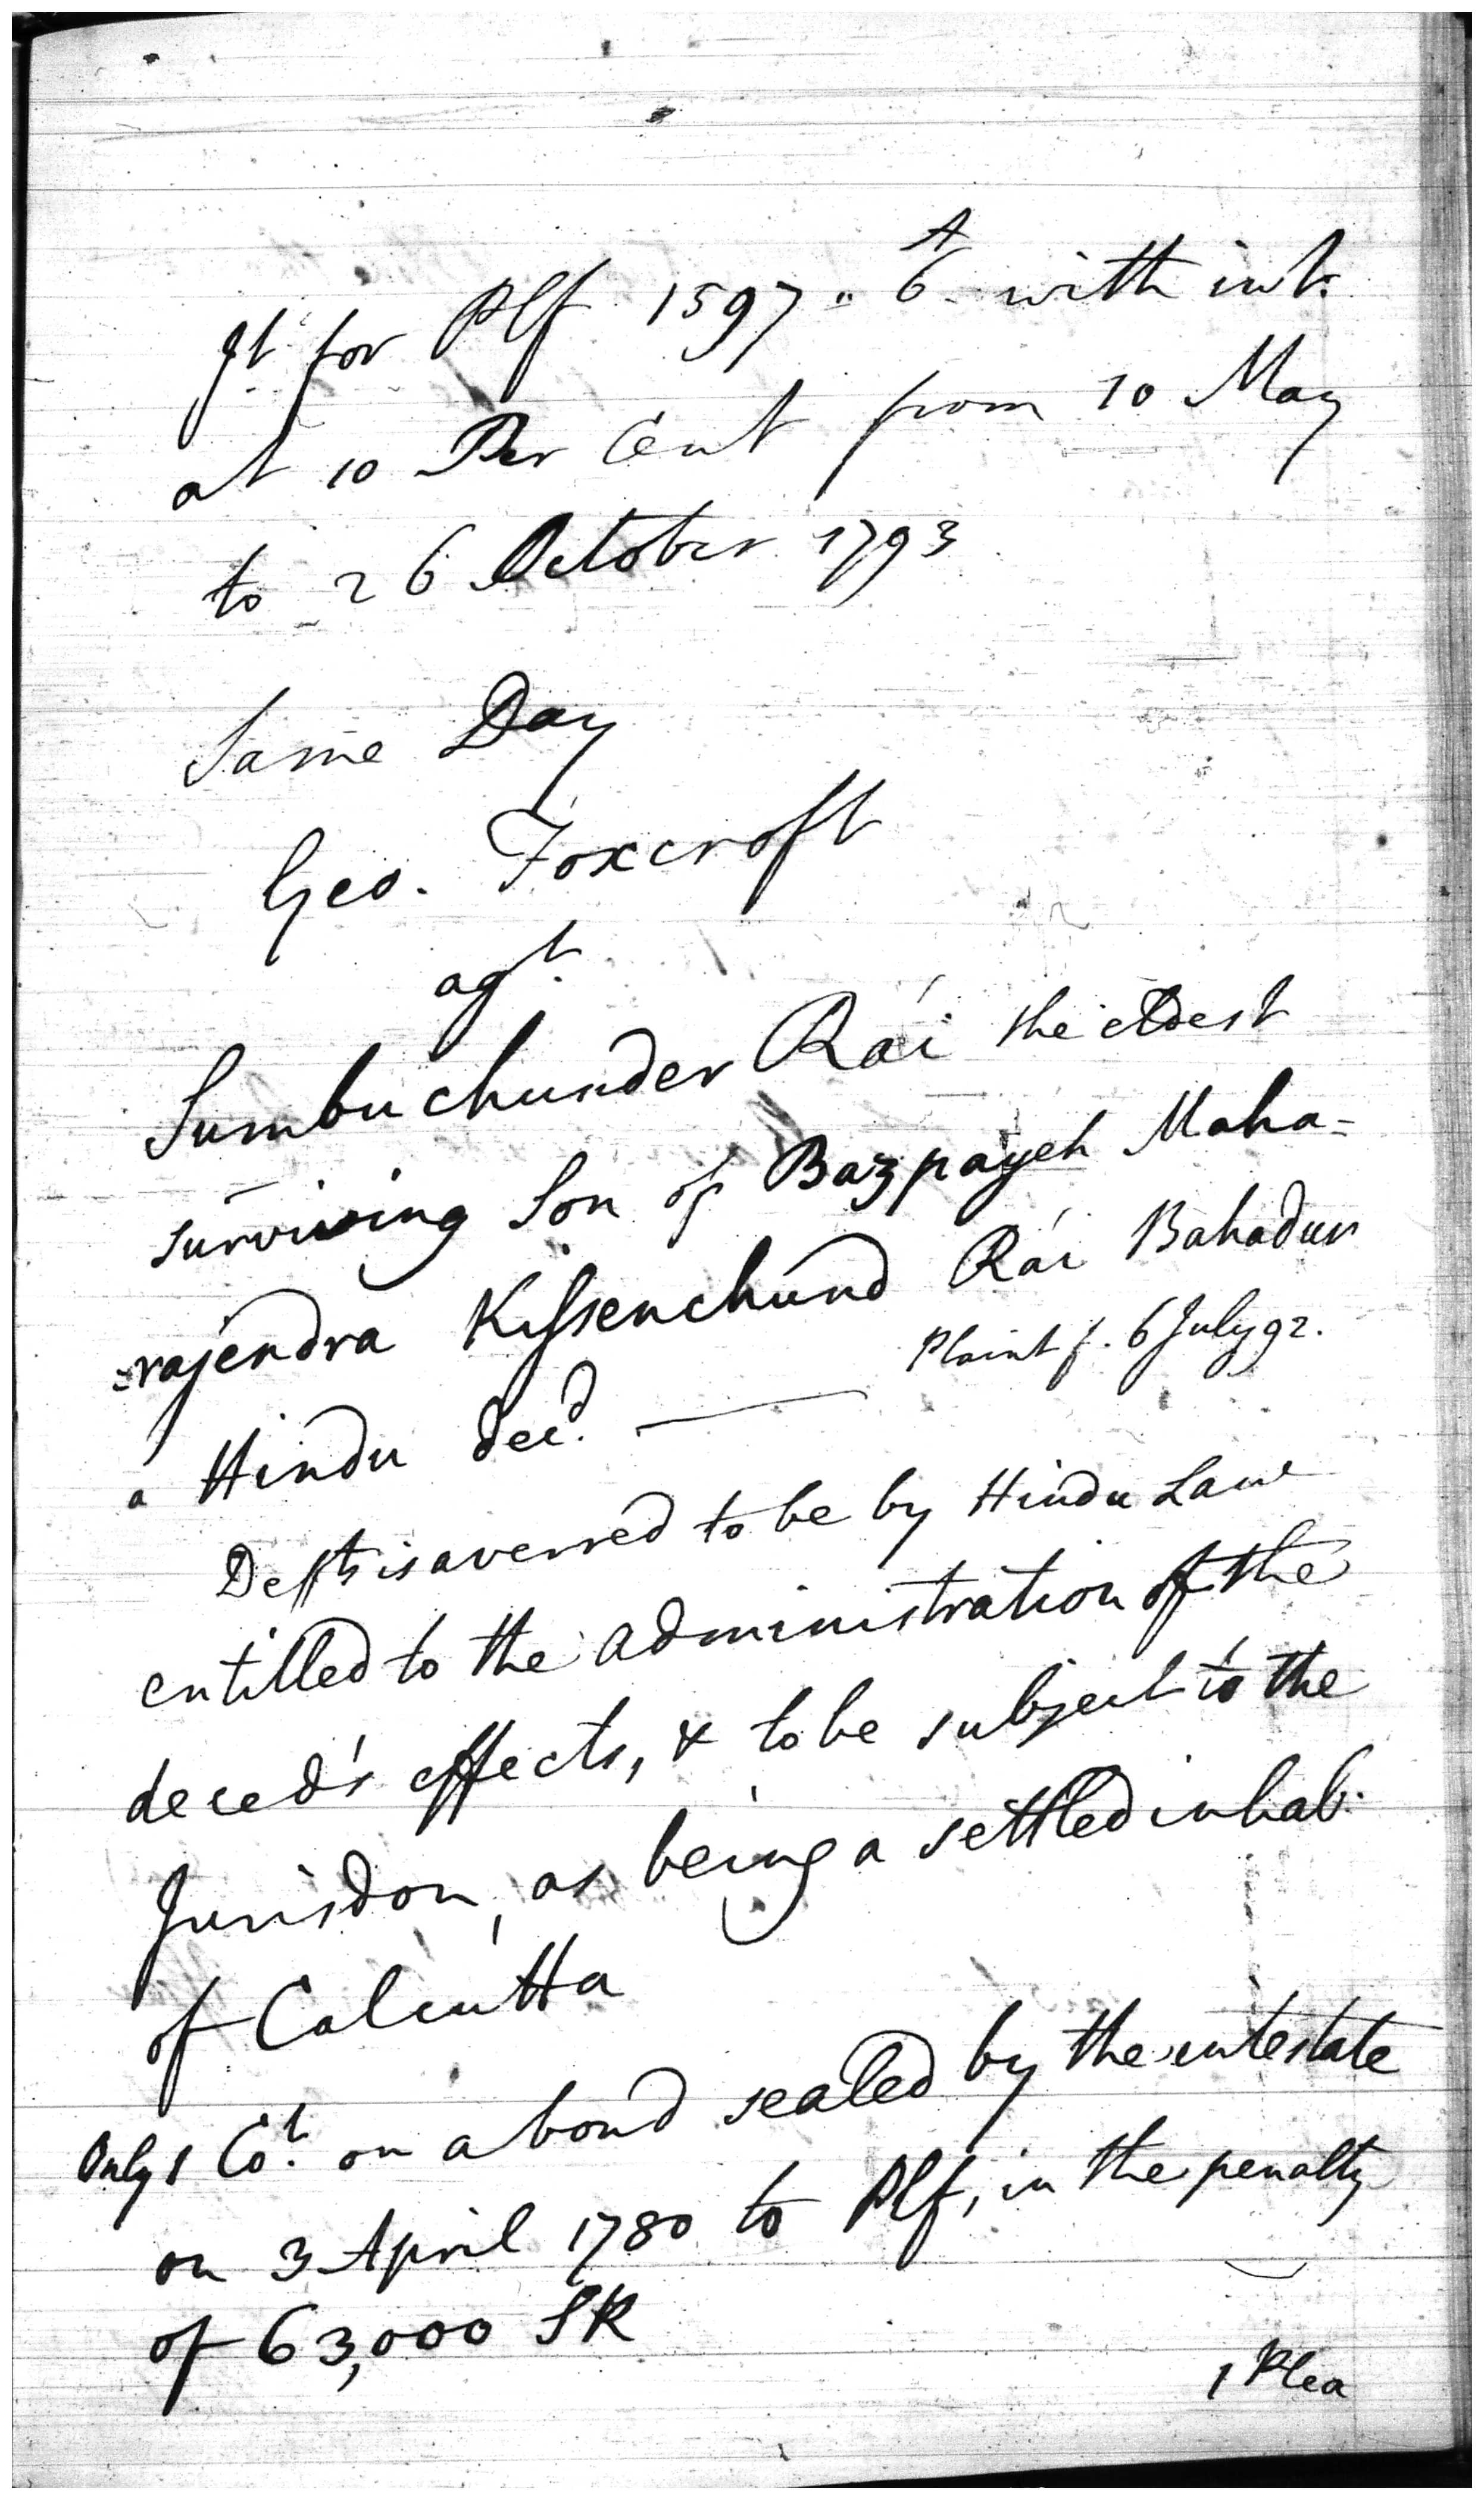 Jt. for Plf 1597 " 6 A with int.
at 10 Per Cent from 10 May
to 26 October 1793
Same Day
Geo. Foxcroft
agt.
Sumbuchunder Rái the eldest
surviving Son of Bazpayeh Maha=
=rajendra Kissenchund Rái Bahadur
a Hindu decd. — Plaint f. 6 July 92.
Deft is averred to be by Hindu Law
entilled to the administration of the
deced's effects, & to be subject to the
Jurisdon, as being a settled inhab.
of Calcutta
Only 1 Cot. on a bond sealed by the intestate
on 3 April 1780 to Plf, in the penalty
of 63,000 SR
1 Plea